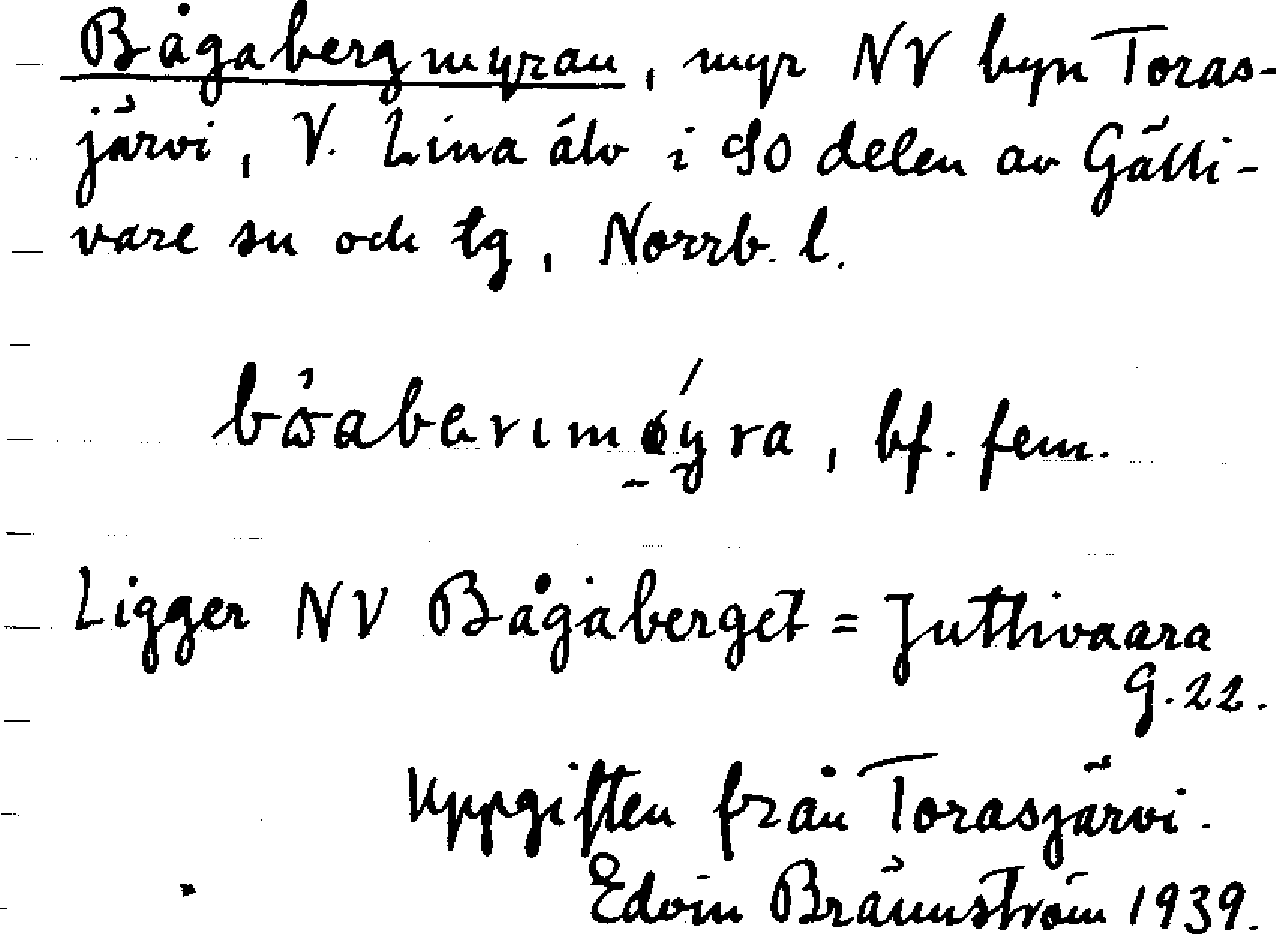 Bågabergmyran, myr NV byn Toras-
järvi, V. Lina älv i SO delen av Gälli-
vare sn och tg, Norrb. l.
bf. fem.
Ligger NV Bågaberget = Juttivaara
G. 22.
Uppgiften från Torasjärvi.
Edvin Brännström 1939.